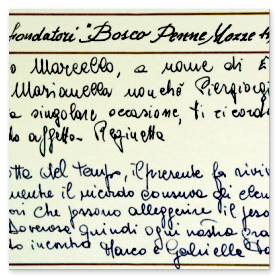 fondatori "Bosco Penne Mozze
o Marcello, a nome di
Marianella nonchè Piergiorgi
a singolare occasione, ti ricord
to affetto Reginetta
otta del tempo, il presente fa rivive
mente il ricordo conserva dei elem
ori che possono alleggerire il peso
Doverosa quindi ogni nostra gra
to incontro Marco e Gabriella